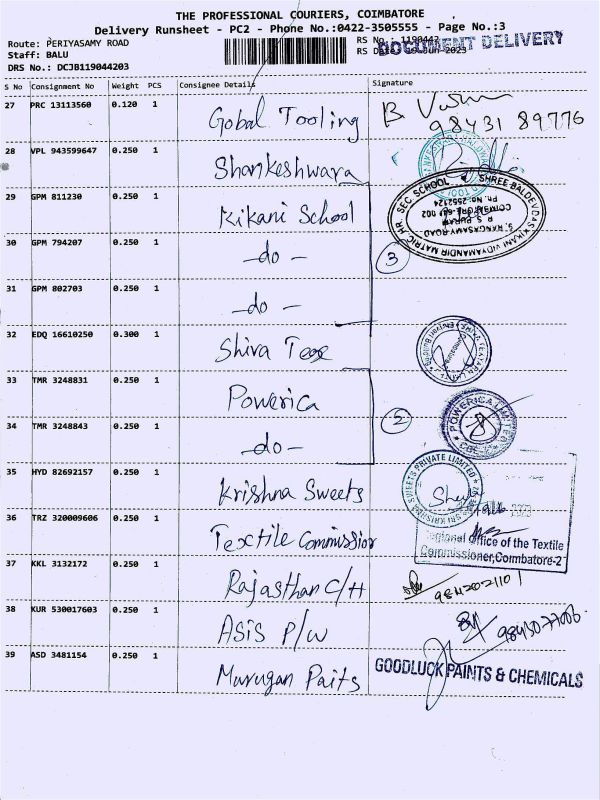 THE PROFESSIONAL COURIERS, COIMBATORE
Delivery Runsheet - PC2 - Phone No.:0422-3505555 - Page No.:3
Route: PERIYASAMY ROAD
Staff: BALU
DRS No.: DCJB119044203
RS No.: 1190442
RS Date: 19 Jun 2023
DOCUMENT DELIVERY
S No Consignment No Weight PCS Consignee Details Signature
27 PRC 13113560 0.120 1 Gobal Tooling
98431 89776
28 VPL 943599647 0.250 1 Shankeshwara
29 GPM 811230 0.250 1 Kikani School
SHREE BALDEVDAS KIKANI VIDYAMANDIR MATRIC. HR. SEC SCHOOL
S. RANGASAMY ROAD,
R.S. PURAM
COIMBATORE-641 002
Ph. No. 2552124
30 GPM 794207 0.250 1 -do-
3
31 GPM 802703 0.250 1 -do-
32 EDQ 16610250 0.300 1 Shiva Texx
33 TMR 3248831 0.250 1 Powerica
34 TMR 3248843 0.250 1 -do-
2
POWERICA LIMITED
35 HYD 82692157 0.250 1 Krishna Sweets
SRI KRISHNA SWEETS PRIVATE LIMITED
36 TRZ 320009606 0.250 1 Textile Commission
Regional Office of the Textile
Commissioner, Coimbatore-2
37 KKL 3132172 0.250 1 Rajasthan C/H
9842021101
38 KUR 530017603 0.250 1 ASIS P/W
9843077006
39 ASD 3481154 0.250 1 Murugan Paits
GOODLUCK PAINTS & CHEMICALS